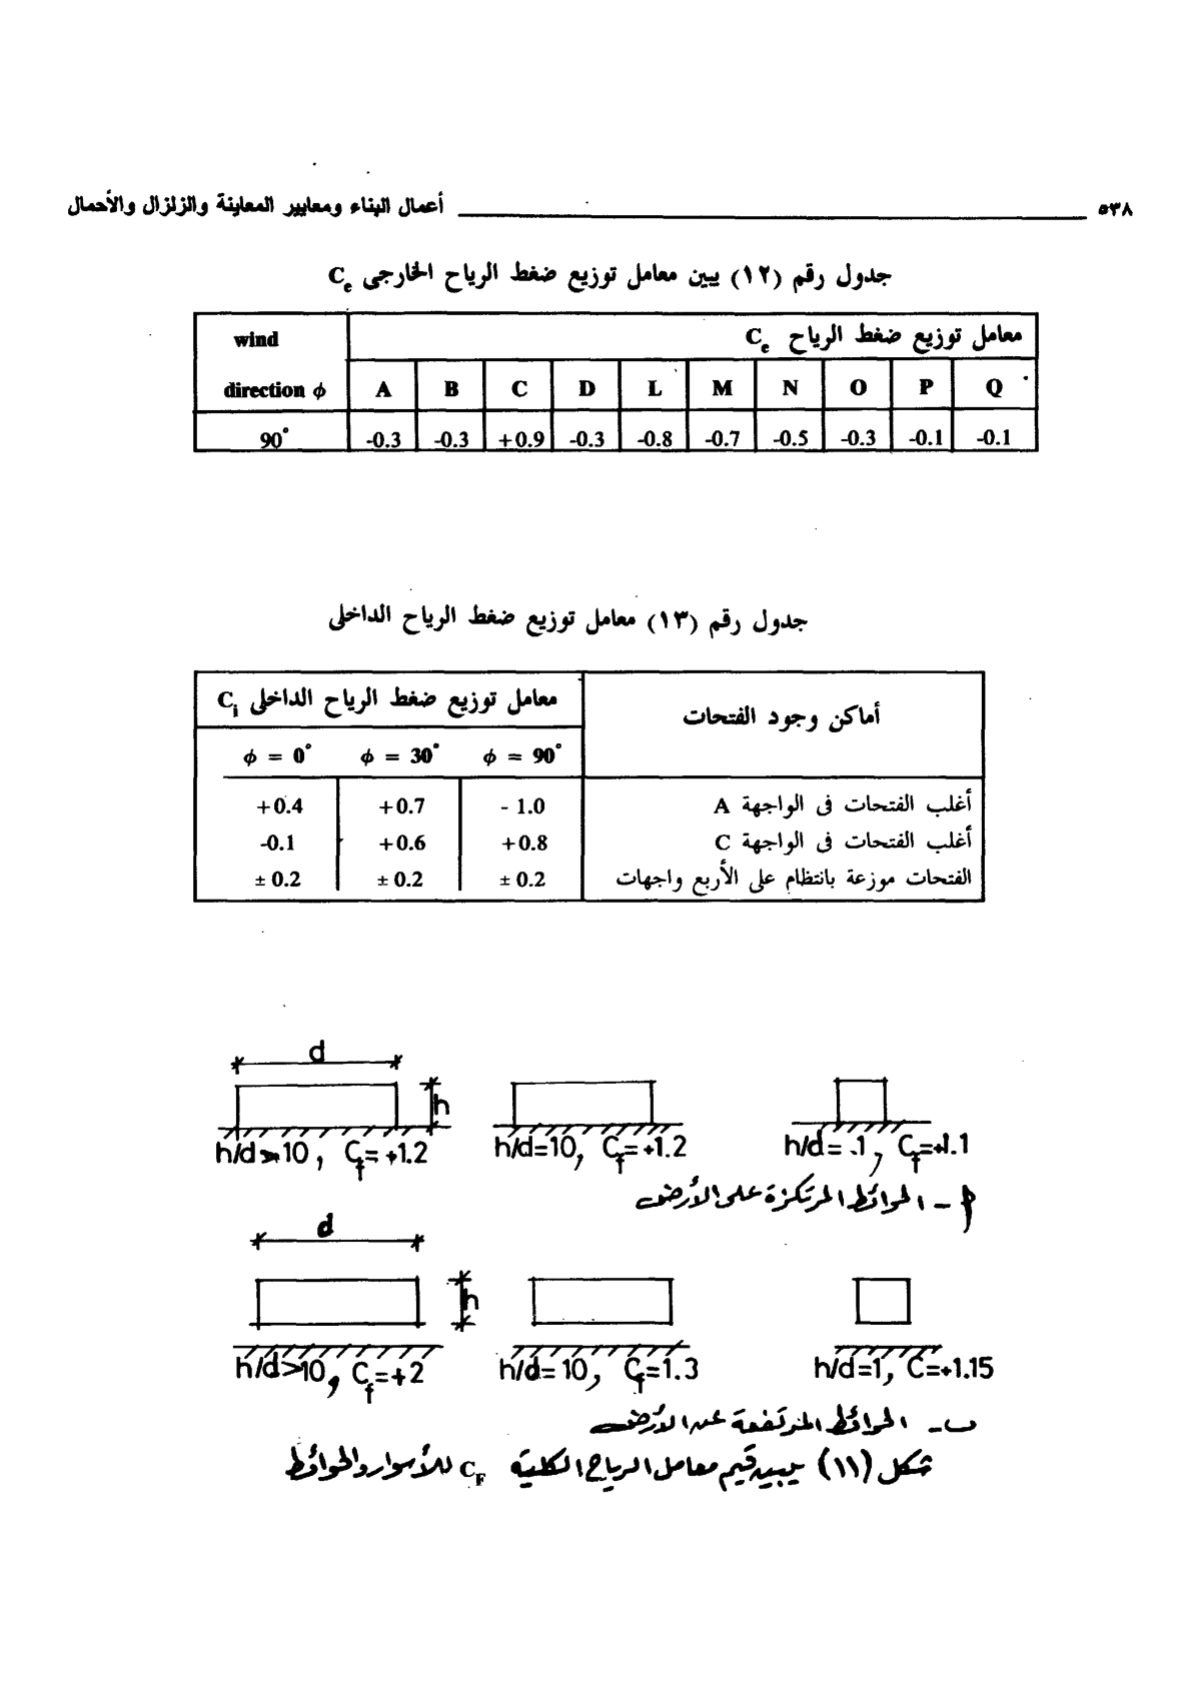 ٥٣٨ أعمال البناء ومعايير المعاينة والزلزال والأحمال
جدول رقم (١٢) يبين معامل توزيع ضغط الرياح الخارجى Ce
wind direction ϕ معامل توزيع ضغط الرياح Ce
A B C D L M N O P Q
90° -0.3 -0.3 +0.9 -0.3 -0.8 -0.7 -0.5 -0.3 -0.1 -0.1
جدول رقم (١٣) معامل توزيع ضغط الرياح الداخلى
أماكن وجود الفتحات معامل توزيع ضغط الرياح الداخلى Ci
ϕ = 0° ϕ = 30° ϕ = 90°
+0.4 +0.7 - 1.0 أغلب الفتحات فى الواجهة A
-0.1 +0.6 +0.8 أغلب الفتحات فى الواجهة C
± 0.2 ± 0.2 ± 0.2 الفتحات موزعة بانتظام على الأربع واجهات
d
h
h/d>10, Cf=+1.2 h/d=10, Cf=+1.2 h/d=.1, Cf=+1.1
أ - الحوائط المرتكزة على الأرض
d
h
h/d>10, Cf=+2 h/d=10, Cf=1.3 h/d=1, C=+1.15
ب- الحوائط المرتفعة عن الأرض
شكل (١١) يبين قيم معامل الرياح الكلية CF للأسوار والحوائط